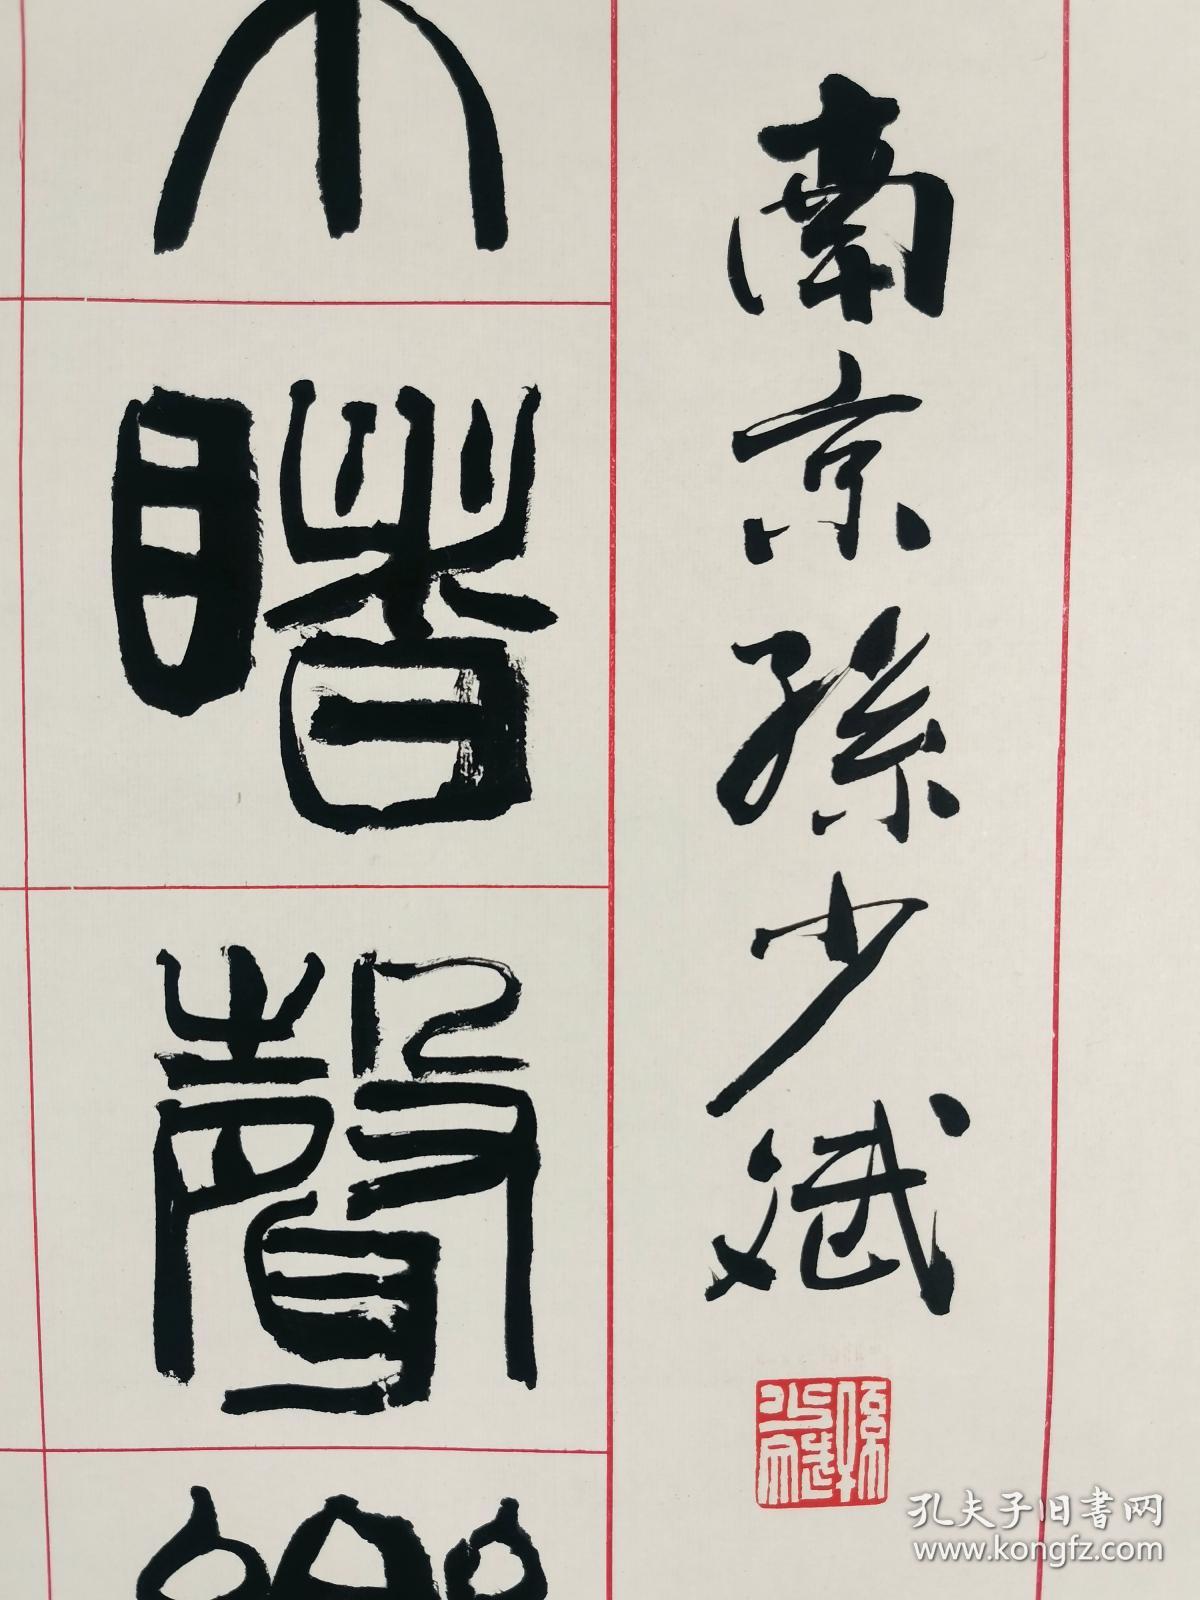 南京孫少斌
孫少斌
睹聲
孔夫子旧书网
www.kongfz.com